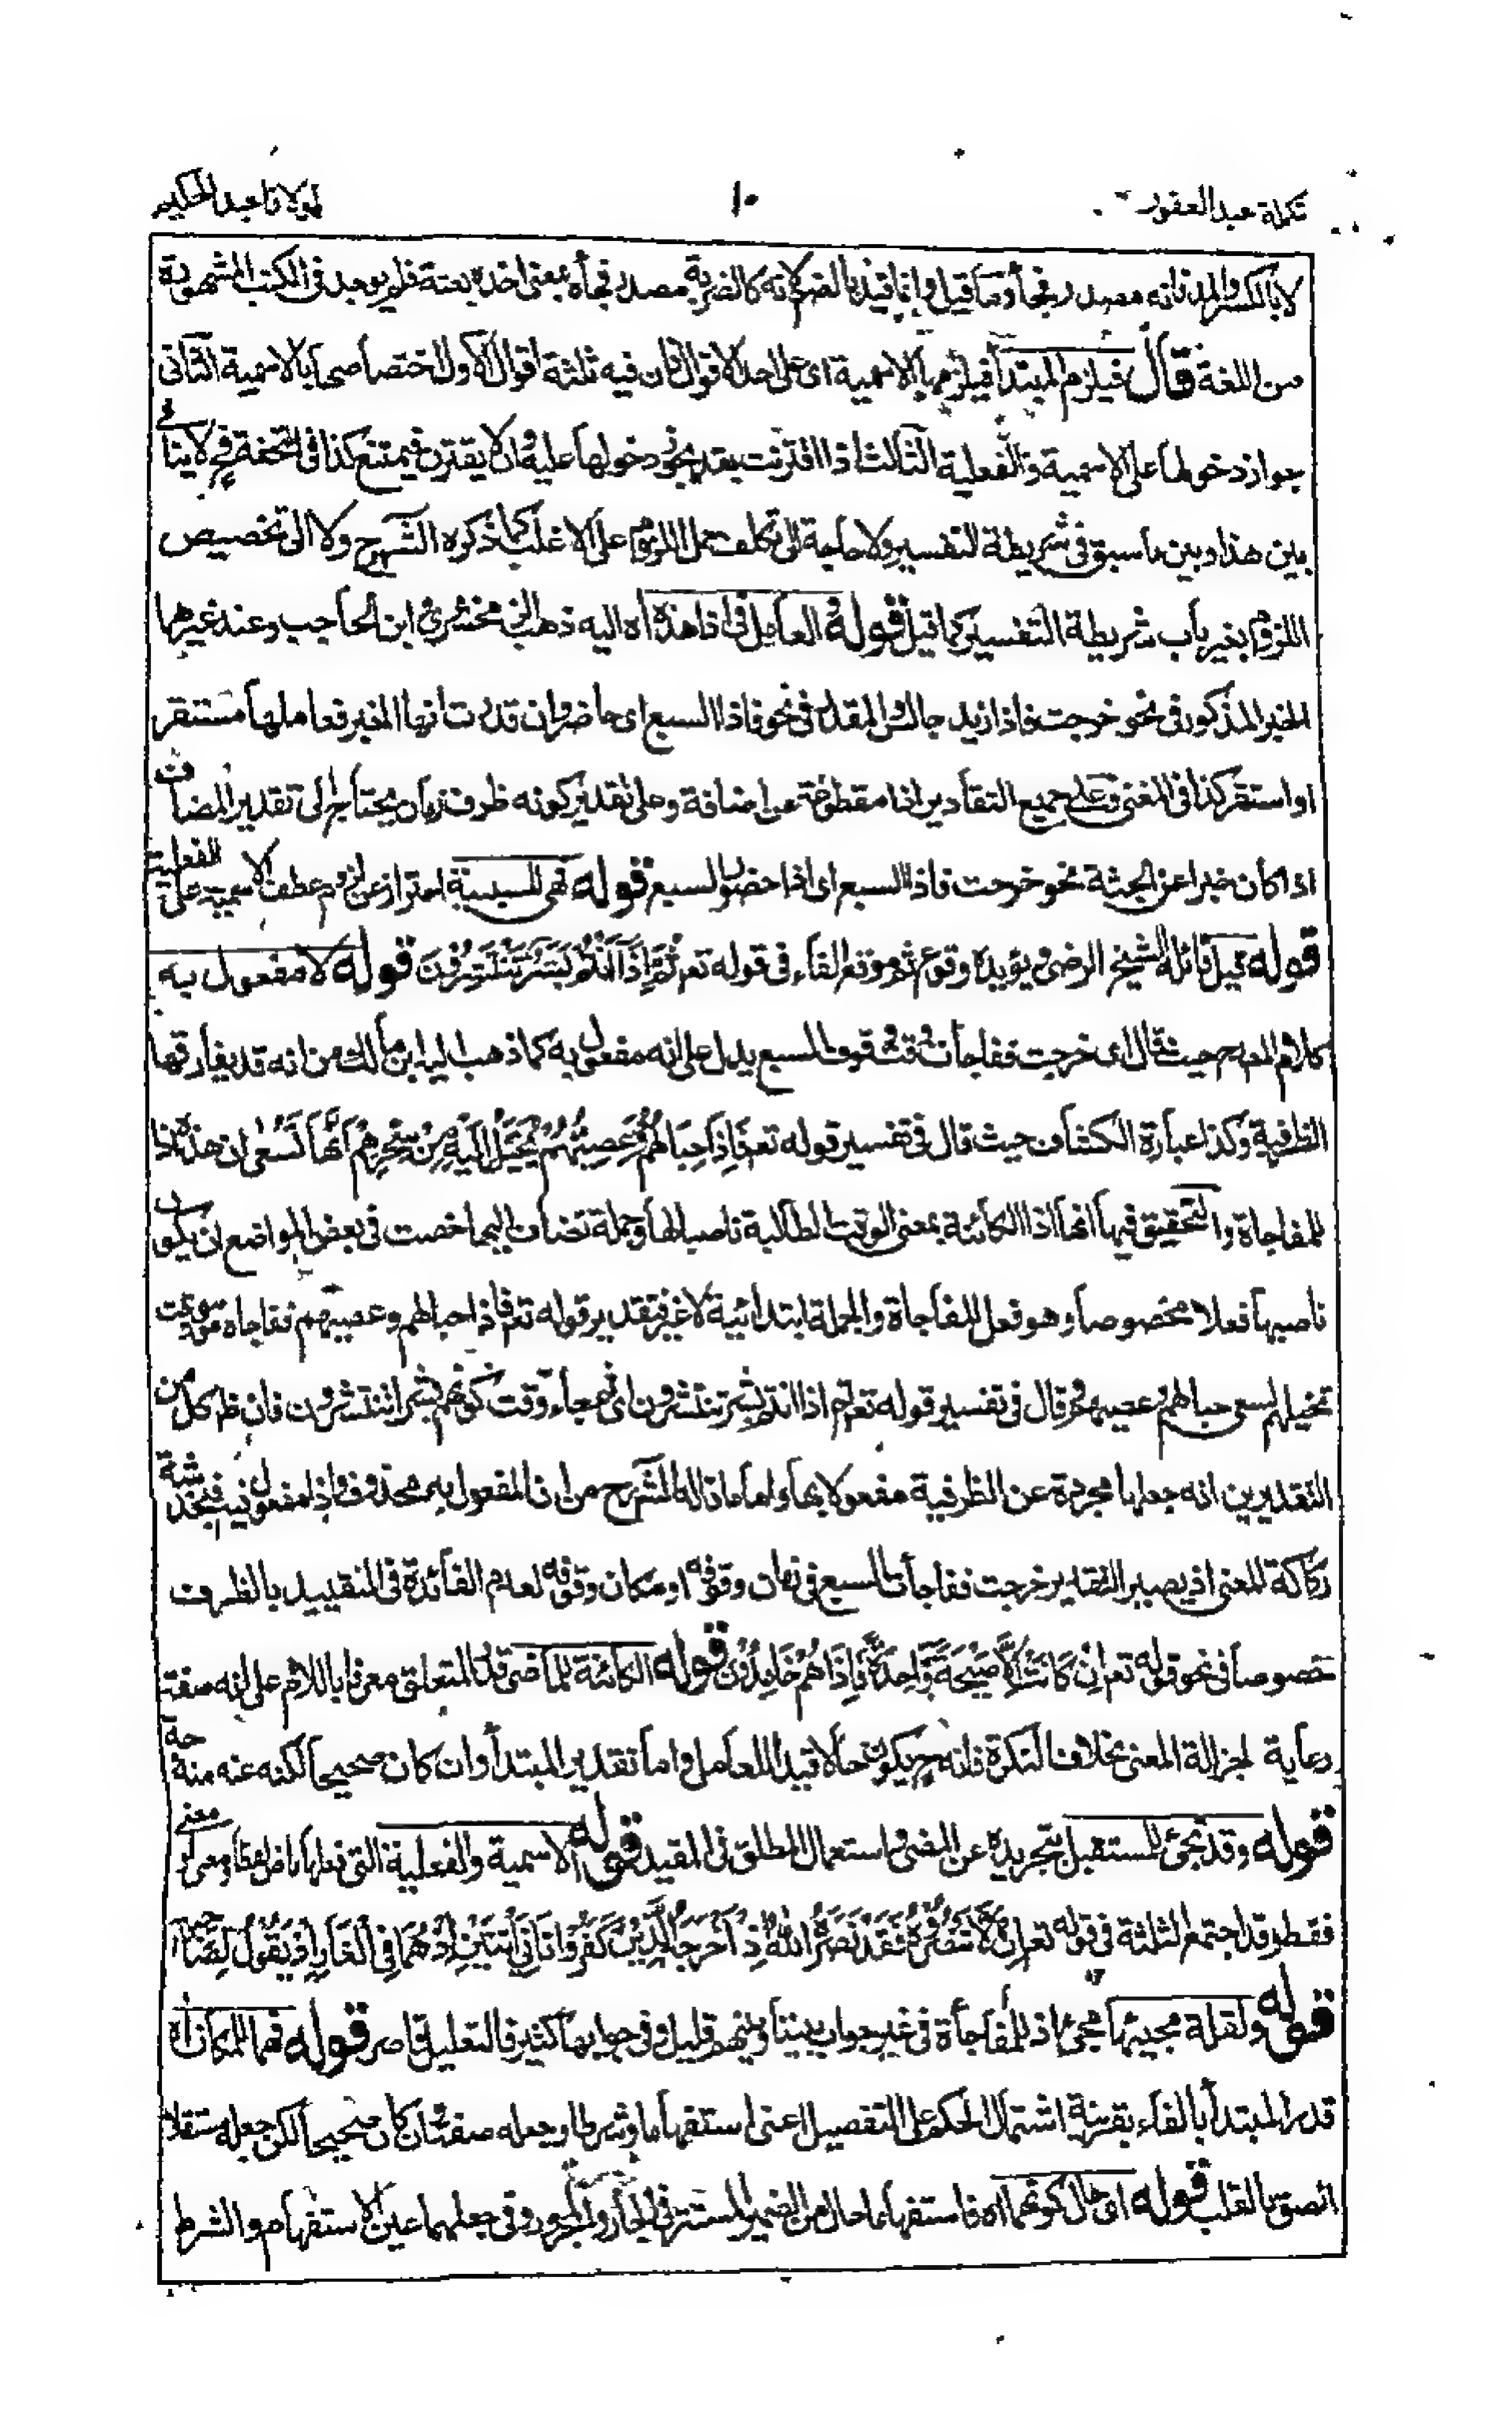 تكملة عبد الغفور
١٠
لمولانا عبد الحكيم
لا بالكسر والمد فانه مصدر فجأ وما قيل وانما قيد بالضم لانه كالضربة مصدر فجأه بمعنى اخذه بغتة فلم يوجد فى الكتب المشهورة
من اللغة قال فيلزم المبتدأ فيلزم بالاسمية اى على احد الاقوال فان فيه ثلثة اقوال الاول اختصاصها بالاسمية الثانى
جواز دخولها على الاسمية والفعلية الثالث اذا اقترنت بقد يجوز دخولها عليه وان لا يقترن فيمتنع كذا فى التحفة فح لا ينافى
بين هذا وبين ما سبق فى شريطة التفسير ولا حاجة الى تكلف حمل اللزوم على الاغلب كما ذكره الشرح ولا الى تخصيص
اللزوم بغير باب شريطة التفسير كما قيل قوله العامل فى اذا هذه اه اليه ذهب الزمخشرى وابن الحاجب وعند غيرهما
الخبر المذكور فى نحو خرجت فاذا زيد جالس والمقدر فى نحو فاذا السبع اى حاضر وان قدرت انها الخبر فعاملها مستقر
او استقر كذا فى المغنى وعلى جميع التقادير اذا مقطوعة عن اضافة وعلى تقدير كونه ظرف زمان يحتاج الى تقدير المضاف
اذا كان خبرا عن الجثة نحو خرجت فاذا السبع اى اذا حضور السبع قوله فهى للسببية احتراز عن لزوم عطف الاسمية على الفعلية
قوله قيل قائله الشيخ الرضى ويؤيده وقوع ثم موقع الفاء فى قوله تع ثُمَّ إِذَا أَنْتُمْ بَشَرٌ تَنْتَشِرُونَ قوله لا مفعول به
كلام المص ح حيث قال اى خرجت ففاجأت وقت وقوف السبع يدل على انه مفعول به كما ذهب اليه ابن مالك من انه قد يفارقها
الظرفية وكذا عبارة الكشاف حيث قال فى تفسير قوله تع فَإِذَا حِبَالُهُمْ وَعِصِيُّهُمْ يُخَيَّلُ إِلَيْهِ مِنْ سِحْرِهِمْ أَنَّهَا تَسْعٰى ان هذه اذا
للمفاجاة والتحقيق فيها انها اذا الكائنة بمعنى الوقت الطالبة ناصبا لها وجملة تضاف اليها خصت فى بعض المواضع ان يكون
ناصبها فعلا مخصوصا وهو فعل المفاجاة والجملة ابتدائية لا غير فتقدير قوله تع فاذا حبالهم وعصيهم ففاجاه موسى وقت
تخييلهم لسعى حبالهم وعصيهم وقال فى تفسير قوله تع ثم اذا انتم بشر تنتشرون اى ثم فجاءوا وقت كونهم بشرا تنتشرون فان ظ كل من
التقديرين انه جعلها مجردة عن الظرفية مفعولا بها واما ما قاله الشرح من ان المفعول به محذوف واذا مفعول فيه فيخدشه
ركاكة المعنى اذ يصير التقدير خرجت ففاجأت السبع فى زمان وقوفه او مكان وقوفه لعدم الفائدة فى التقييد بالظرف
خصوصا فى نحو قوله تع إِنْ كَانَتْ إِلَّا صَيْحَةً وَاحِدَةً فَإِذَا هُمْ خَامِدُونَ قوله الكائنة للماضى قدر المتعلق معرفا باللام على انه صفة
رعاية لجزالة المعنى بخلاف النكرة فانه ح يكون حالا قيدا للعامل واما تقدير المبتدأ وان كان صحيحا لكنه عنه مندوحة
قوله وقد تجئ للمستقبل بتجريده عن المضى واستعمال المطلق فى المقيد قوله الاسمية والفعلية التى فعلها ماض لفظا ومعنى او معنى
فقط وقد اجتمع الثلثة فى قوله تع إِلَّا تَنْصُرُوهُ فَقَدْ نَصَرَهُ اللّٰهُ إِذْ أَخْرَجَهُ الَّذِيْنَ كَفَرُوْا ثَانِيَ اثْنَيْنِ إِذْ هُمَا فِي الْغَارِ إِذْ يَقُوْلُ لِصَاحِبِهِ
قوله ولقلة مجيئها مجئ اذ للمفاجأة فى غير جواب بينا وبينما قليل وفى جوابها كثير فالتعليل قاصر قوله فهما للمكان اه
قدر المبتدأ بالفاء بقرينة اشتمال الحكم على التفصيل اعنى استفهاما وشرطا وجعله صفة وان كان صحيحا لكن جعله مستقلا
الصق بالقلب قوله اى حال كونهما اه فاستفهاما حال من الضمير المستتر فى الجار والمجرور وفى جعلهما عين الاستفهام والشرط